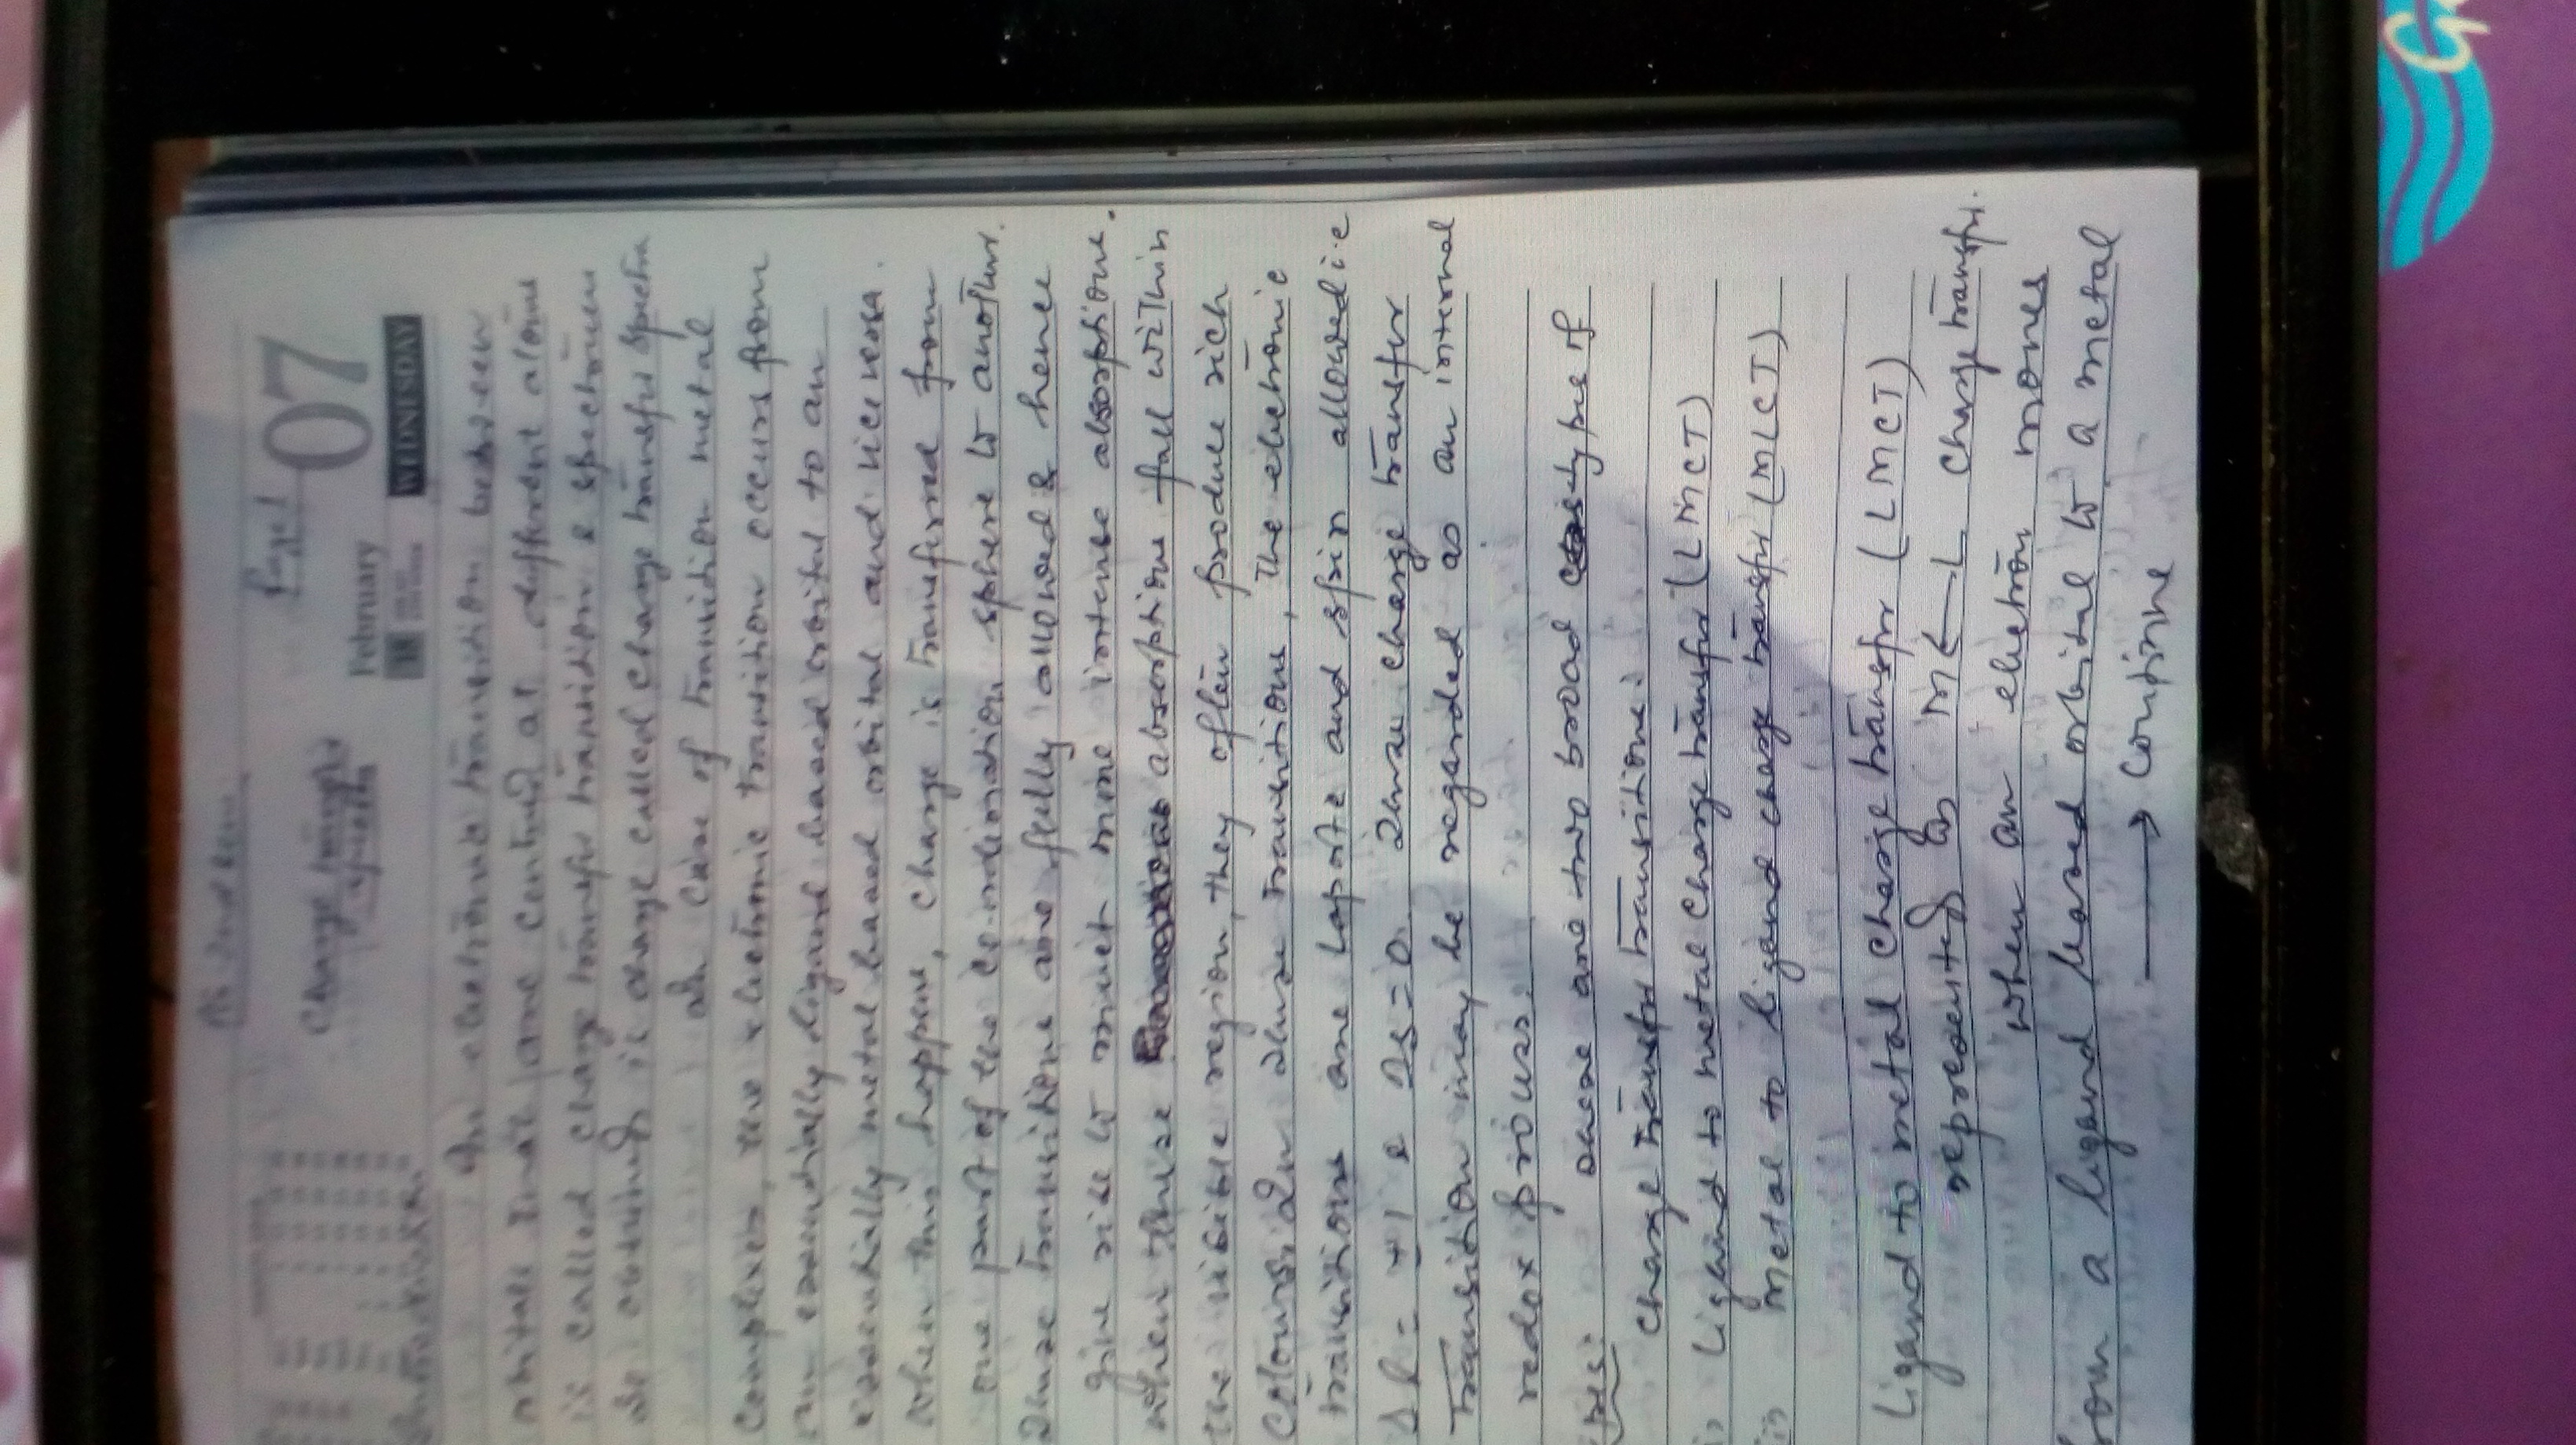 Page 1
07
Charge transfer
spectra
February
WEDNESDAY
An electronic transition between
orbitals that are centred at different atoms
is called charge transfer transition & spectrum
so obtained is charge called charge transfer spectra
In case of transition metal
complexes, the electronic transition occurs from
an essentially ligand based orbital to an
essentially metal based orbital and vice versa.
When this happens, charge is transferred from
one part of the co-ordination sphere to another.
These transitions are fully allowed & hence
give rise to much more intense absorptions.
When these absorptions fall within
the visible region, they often produce rich
colours. In these transitions, the electronic
transitions are Laporte and spin allowed i.e
Δl = ±1 & Δs = 0. These charge transfer
Transition may be regarded as an internal
redox process.
There are two broad types of
charge transfer transitions:
i) Ligand to metal charge transfer (LMCT)
ii) Metal to ligand charge transfer (MLCT)
Ligand to metal charge transfer (LMCT)
represented as M ← L charge transfer.
When an electron moves
from a ligand based orbital to a metal
→ continue